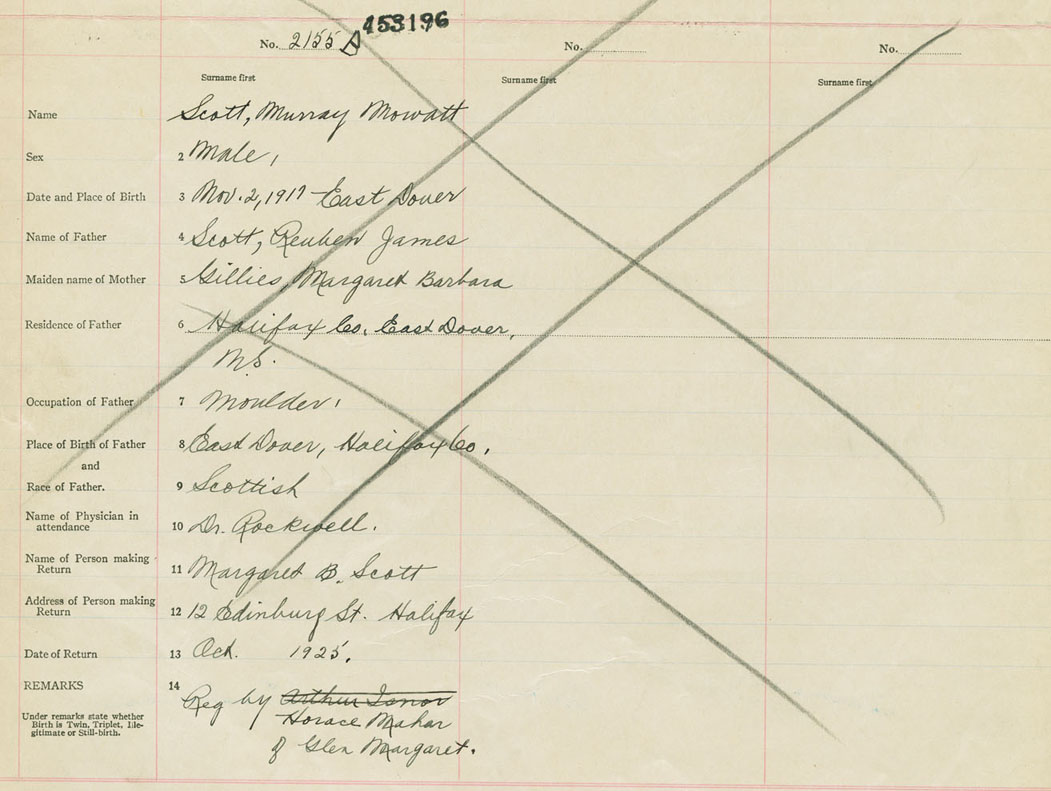 453196
No. 2155 B
No.
No.
Surname first
Surname first
Surname first
Name Scott, Murray Mowatt
Sex 2 Male,
Date and Place of Birth 3 Nov. 2, 1917 - East Dover
Name of Father 4 Scott, Reuben James
Maiden name of Mother 5 Gillies, Margaret Barbara
Residence of Father 6 Halifax Co. East Dover,
N.S.
Occupation of Father 7 Moulder.
Place of Birth of Father 8 East Dover, Halifax Co.
and
Race of Father. 9 Scottish
Name of Physician in
attendance 10 Dr. Rockwell.
Name of Person making
Return 11 Margaret B. Scott
Address of Person making
Return 12 12 Edinburg St. Halifax
Date of Return 13 Oct. 1925.
REMARKS 14 Reg by Arthur Isnor
Under remarks state whether
Birth is Twin, Triplet, Ille-
gitimate or Still-birth.
Horace Mahar
of Glen Margaret.